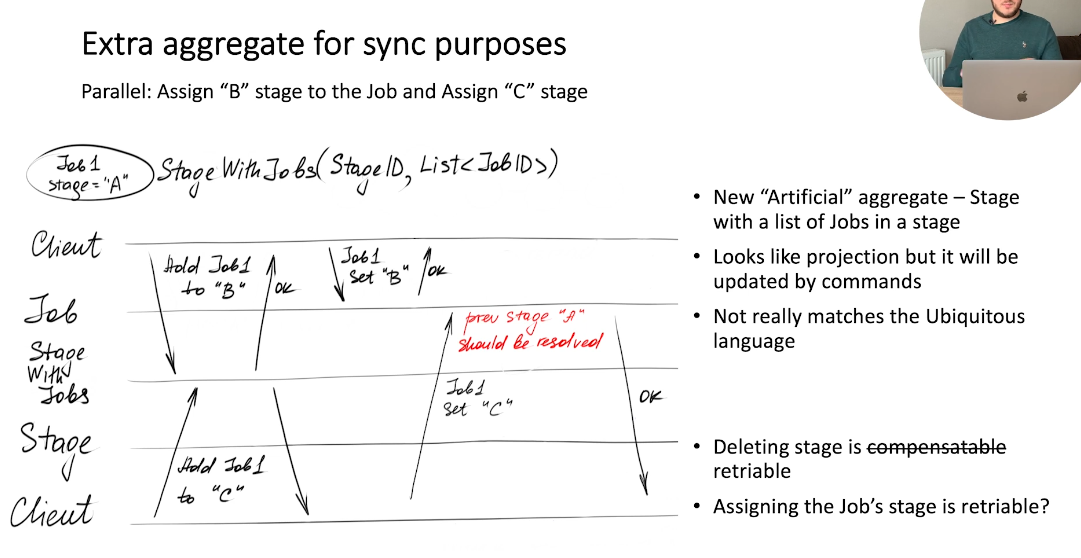 Extra aggregate for sync purposes
Parallel: Assign “B” stage to the Job and Assign “C” stage
Job 1
stage = "A"
StageWithJobs(StageID, List<JobID>)
Client
Hold Job1
to "B"
OK
Job1
Set "B"
OK
Job
prev stage "A"
should be resolved
Stage
With
Jobs
Job1
Set "C"
OK
Stage
Hold Job1
to "C"
Client
• New “Artificial” aggregate – Stage
with a list of Jobs in a stage
• Looks like projection but it will be
updated by commands
• Not really matches the Ubiquitous
language
• Deleting stage is compensatable
retriable
• Assigning the Job’s stage is retriable?